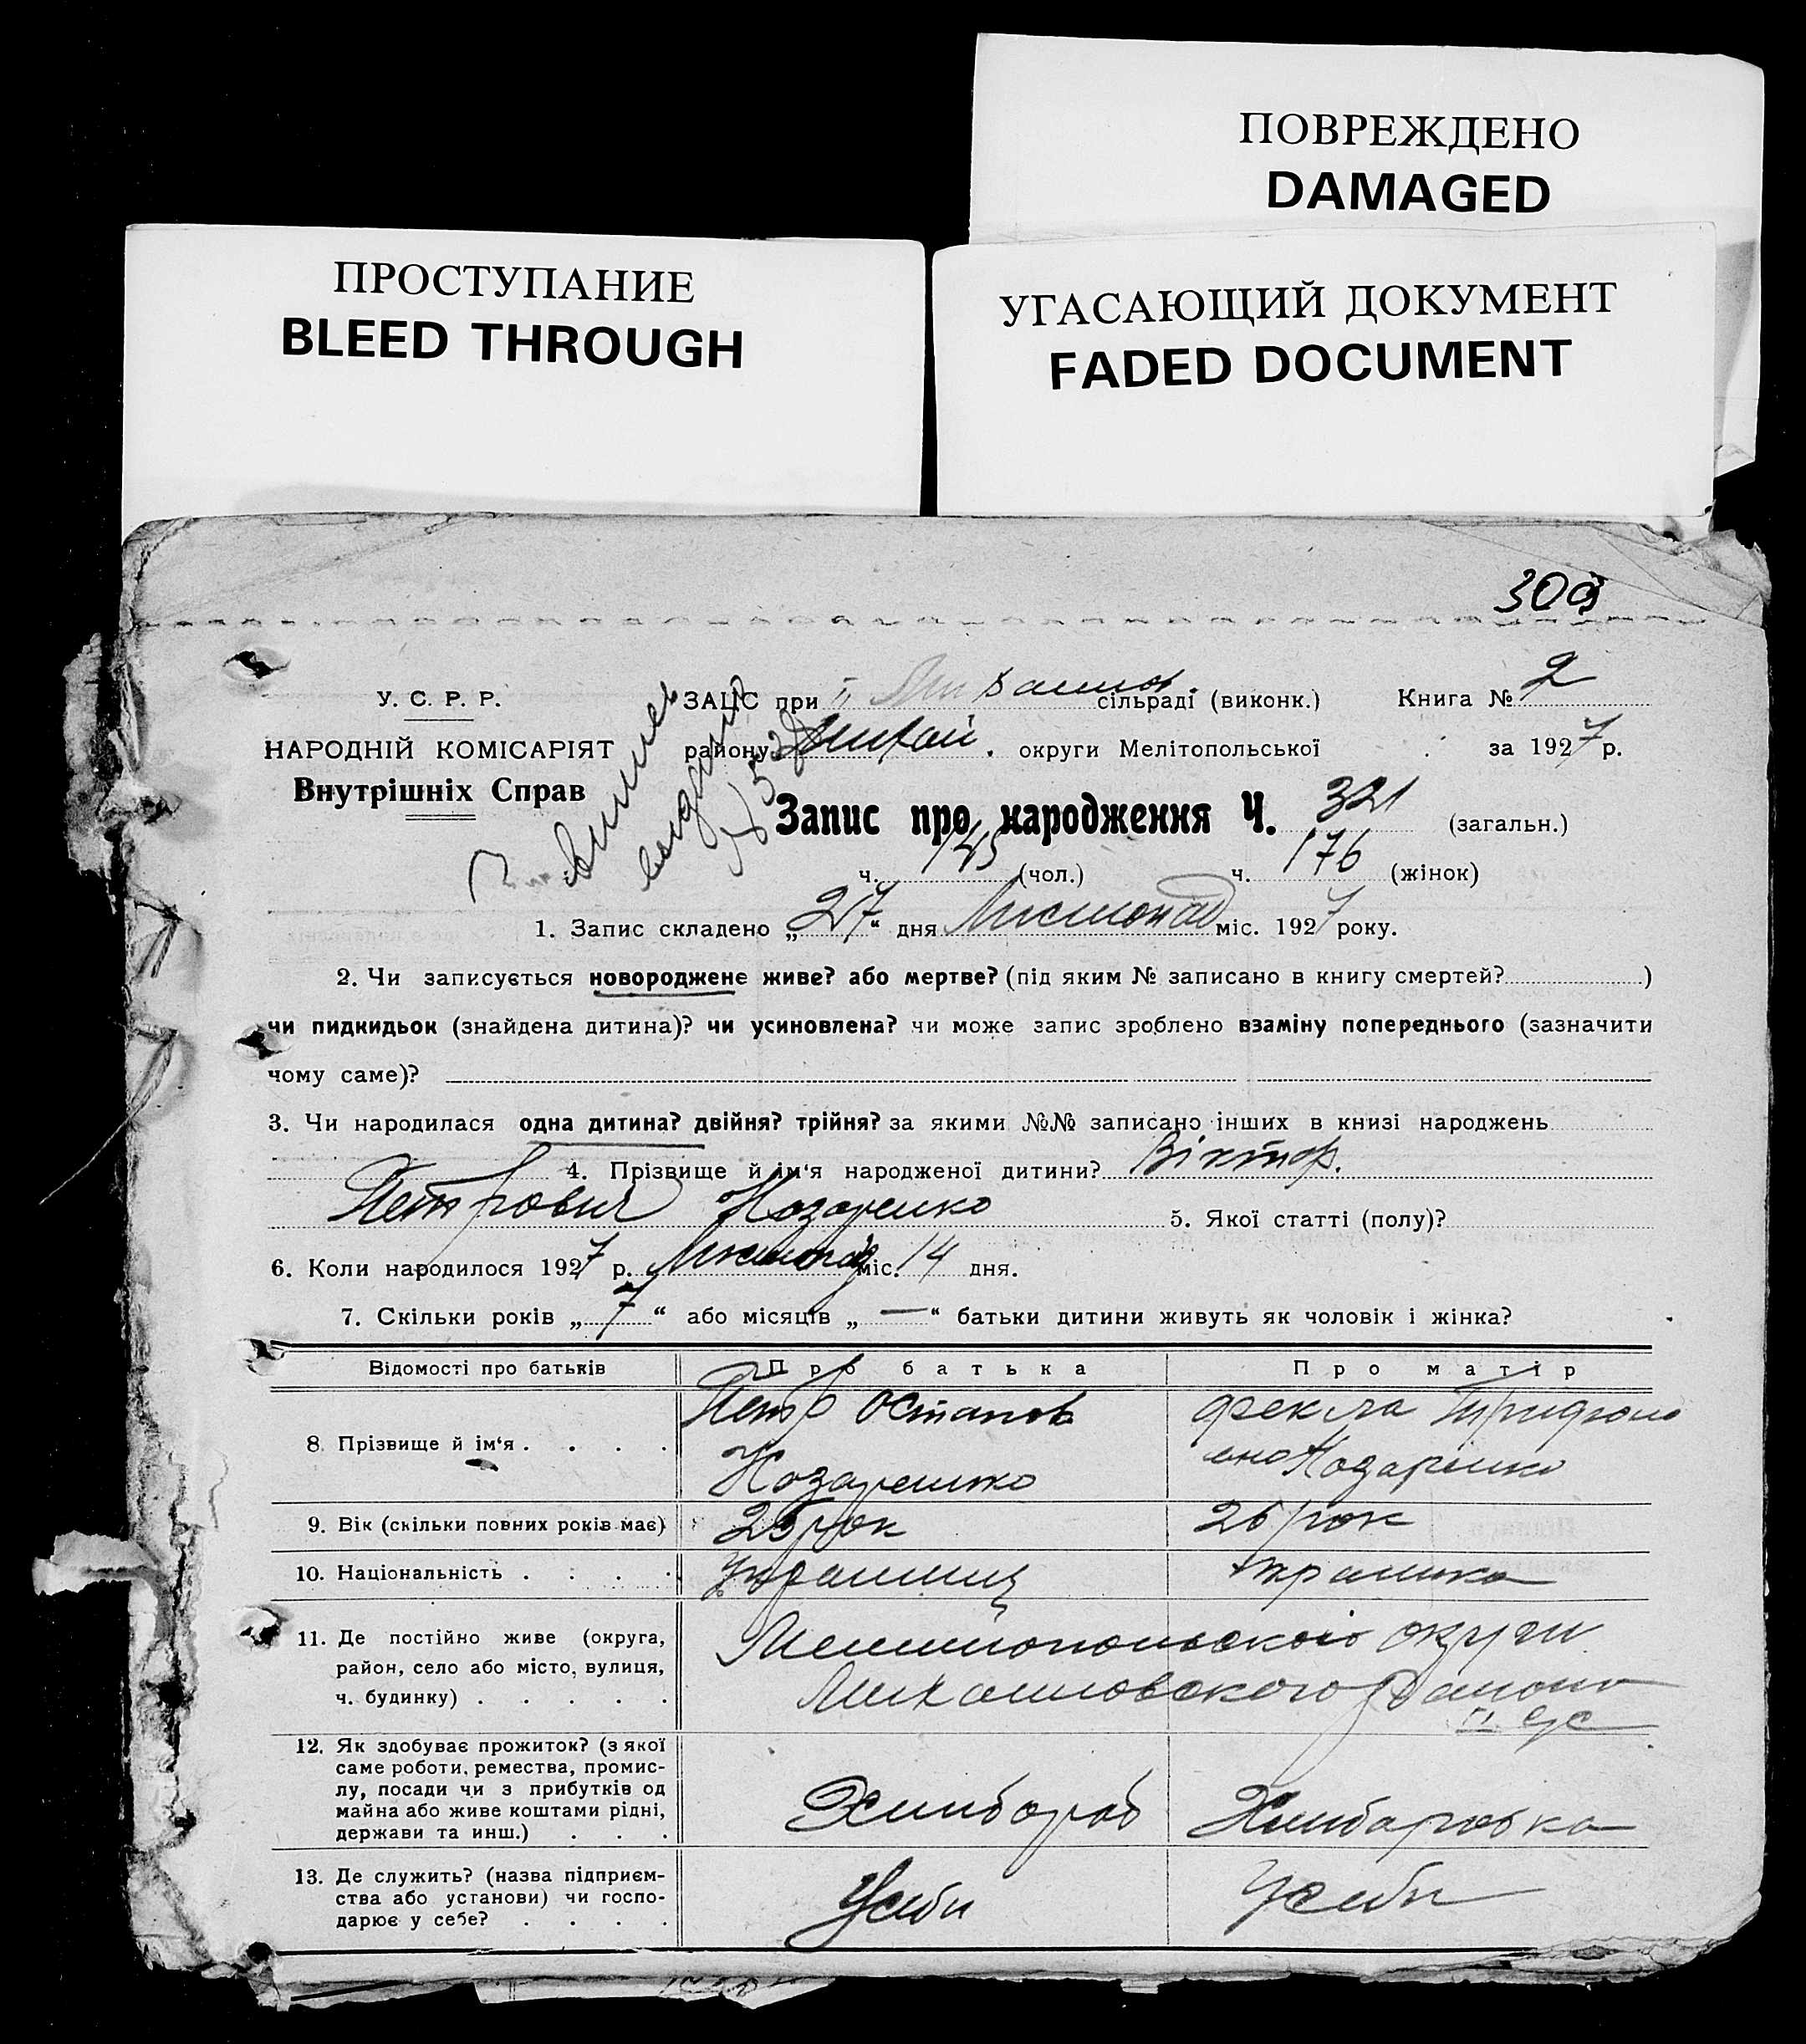 ПОВРЕЖДЕНО
DAMAGED
ПРОСТУПАНИЕ
BLEED THROUGH
УГАСАЮЩИЙ ДОКУМЕНТ
FADED DOCUMENT
У. С. Р. Р.
НАРОДНІЙ КОМІСАРІЯТ
Внутрішніх Справ
ЗАЦС при сільраді (виконк.) Книга № 2
району округи Мелітопольської за 1927 р.
Запис про народження Ч. 321 (загальн.)
ч. 145 (чол.) ч. 176 (жінок)
1. Запис складено „27“ дня Листопад міс. 1927 року.
2. Чи записується новороджене живе? або мертве? (під яким № записано в книгу смертей? )
чи пидкидьок (знайдена дитина)? чи усиновлена? чи може запис зроблено взаміну попереднього (зазначити
чому саме)?
3. Чи народилася одна дитина? двійня? трійня? за якими №№ записано інших в книзі народжень
4. Прізвище й ім‘я народженої дитини? Віктор.
Петрович Назаренко 5. Якої статті (полу)?
6. Коли народилося 1927 р. Листопад міс. 14 дня.
7. Скільки років „7“ або місяців „—“ батьки дитини живуть як чоловік і жінка?
Відомості про батьків Про батька Про матір
8 Прізвище й ім‘я . . . . Петр Остапов Назаренко Фекла Назаренко
9. Вік (скільки повних років має) 25 рок 26 рок
10. Національність . . . . Українець Українка
11. Де постійно живе (округа,
район, село або місто, вулиця,
ч. будинку) . . . . .
Мелитопольскоі округи
Михаиловского Району
12. Як здобуває прожиток? (з якої
саме роботи, ремества, промис-
лу, посади чи з прибутків од
майна або живе коштами рідні,
держави та инш.) . . .
Хлибороб Хлиборобка
13. Де служить? (назва підприєм-
ства або установи) чи госпо-
дарює у себе? . . . .
У себи У себи